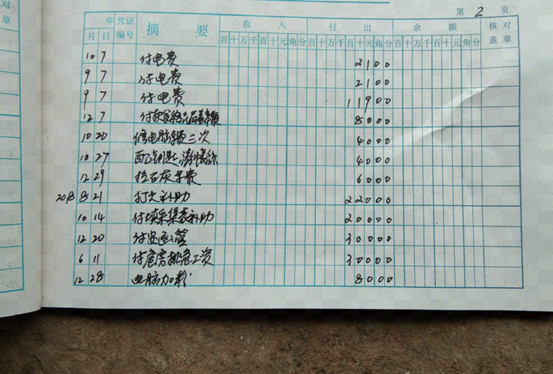 第 2 页
年 凭证编号 摘要 收入 付出 余额 核对盖章
月 日 百十万千百十元角分 百十万千百十元角分 百十万千百十元角分
10 7 付电费 2100
9 7 付电费 2100
9 7 付电费 11900
12 7 8000
10 20 修电脑 费二次 4000
10 27 配钥匙 4000
12 29 拉石灰 费 6000
2018 8 21 打火补助 22000
10 14 付 采集 补助 20000
12 20 付 30000
6 11 付危房 工资 30000
12 28 电脑加 8000